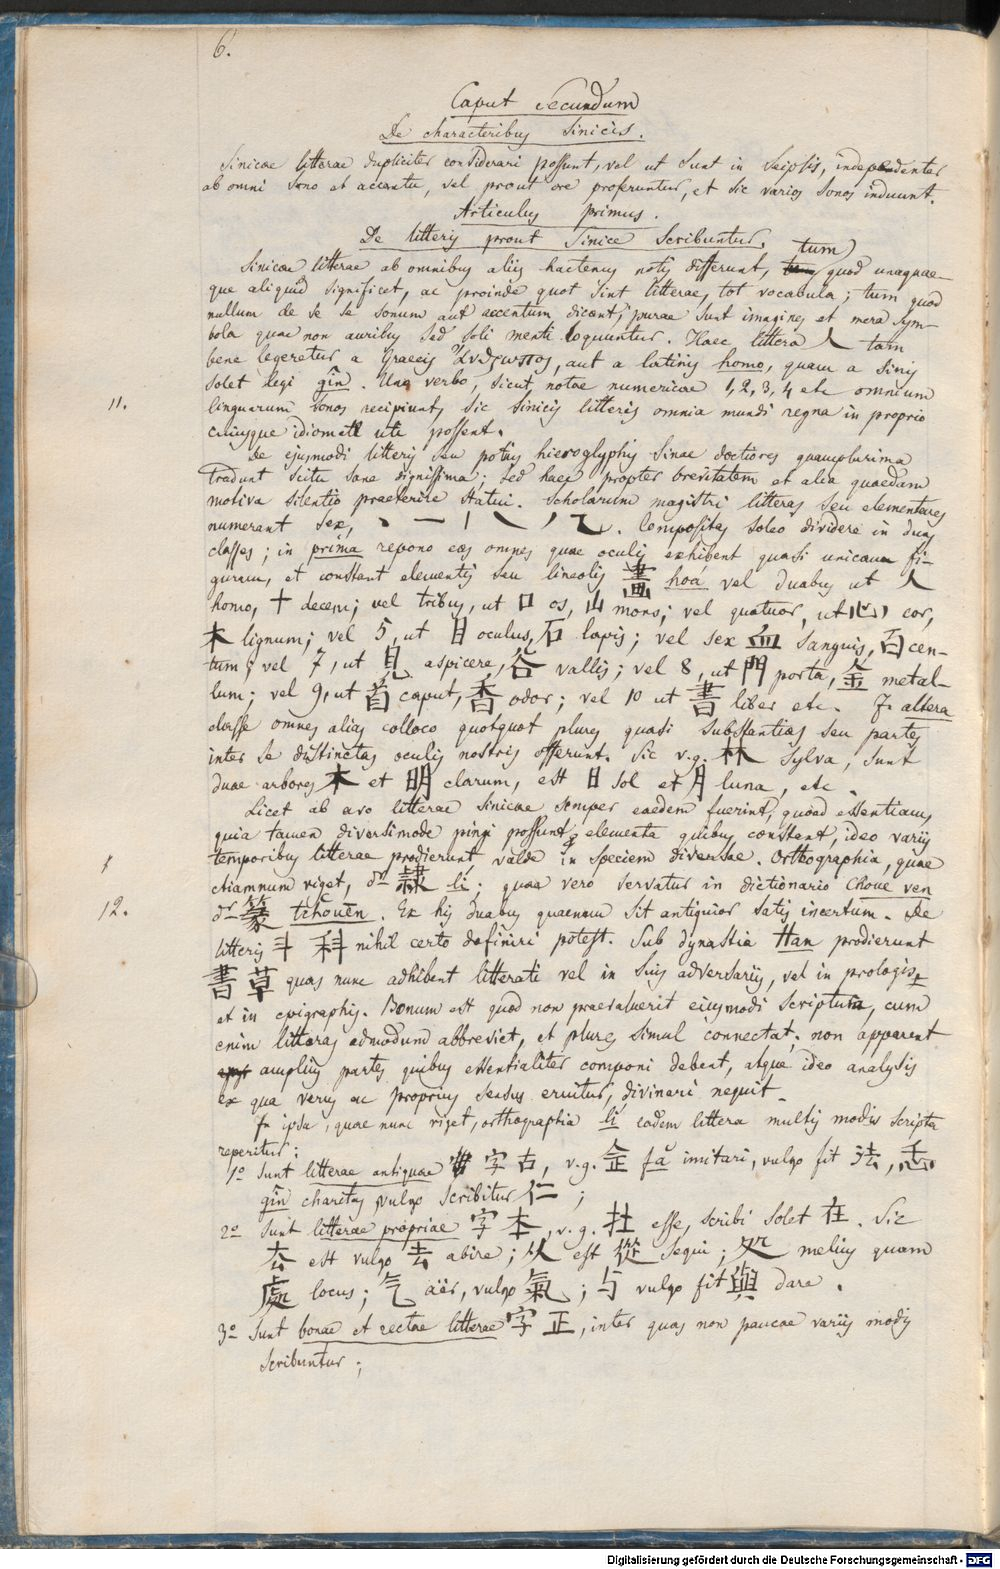 6.
Caput Secundum
De characteribus Sinicis.
Sinicae litterae dupliciter considerari possunt, vel ut sunt in seipsis, independenter
ab omni sono et accentu, vel prout ore proferuntur, et sic varios sonos induunt.
Articulus primus.
De litteris prout Sinice scribuntur.
tum
Sinicae litterae ab omnibus aliis hactenus notis differunt, quod unaquae-
que aliquid significet, ac proinde quot sint litterae, tot vocabula; tum quod
nullum de se sonum aut accentum dicant, purae sunt imagines et mera sym-
bola quae non auribus sed soli menti loquuntur. Haec littera 人 tam
bene legeretur a Graecis ἄνθρωπος, aut a latinis homo, quam a Sinis
solet legi gîn. Uno verbo, sicut notae numericae 1, 2, 3, 4 etc omnium
11.
linguarum sonos recipiunt, sic Sinicis litteris omnia mundi regna in proprio
cuiusque idiomate uti possent.
De ejusmodi litteris seu potius hieroglyphis Sinae doctiores quamplurima
tradunt scitu sane dignissima; sed haec propter brevitatem et alia quaedam
motiva silentio praeterire statui. Scholarum magistri litteras seu elementares
numerant sex, 丶 一 丨 乀 丿 乙. Compositas soleo dividere in duas
classes; in prima repono eas omnes quae oculis exhibent quasi unicam fi-
guram, et constant elementis seu lineolis 畫 hoá vel duabus ut 人
homo, 十 decem; vel tribus, ut 口 os, 山 mons; vel quatuor, ut 心 cor,
木 lignum; vel 5, ut 目 oculus, 石 lapis; vel sex 血 sanguis, 百 cen-
tum; vel 7, ut 見 aspicere, 谷 vallis; vel 8, ut 門 porta, 金 metal-
lum; vel 9, ut 首 caput, 香 odor; vel 10 ut 書 liber etc. In altera
classe omnes alias colloco quotquot plures quasi substantias seu partes
inter se distinctas oculis nostris offerunt. Sic v.g. 林 sylva, sunt
duae arbores 木 et 明 clarum, est 日 sol et 月 luna, etc.
Licet ab avo litterae sinicae semper eaedem fuerint, quoad essentiam,
quia tamen diversimode pingi possunt elementa quibus constant, ideo variis
temporibus litterae prodierunt valde in speciem diversae. Orthographia, quae
etiamnum viget, dr 隸 li; quae vero servatur in dictionario Choue ven
12.
dr 篆 tchouēn. Ex his duabus quaenam sit antiquior satis incertum. De
litteris 斗 科 nihil certo definiri potest. Sub dynastia Han prodierunt
書 草 quas nunc adhibent litterati vel in suis adversariis, vel in prologis
et in epigraphis. Bonum est quod non praevaluerit ejusmodi scriptura, cum
enim litteras admodum abbreviet, et plures simul connectat, non apparent
amplius partes quibus essentialiter componi debent, atque ideo analysis
ex qua verus ac proprius sensus eruitur, divinari nequit.
In ipsa, quae nunc viget, orthographia li eadem littera multis modis scripta
reperitur;
1º Sunt litterae antiquae 字 古, v.g. 佱 fǎ imitari, vulgo fit 法, 忎
gîn charitas vulgo scribitur 仁;
2º Sunt litterae propriae 字 本, v.g. 扗 esse, scribi solet 在. Sic
厺 est vulgo 去 abire; 从 est 從 sequi; 処 melius quam
處 locus; 气 aër, vulgo 氣; 与 vulgo fit 與 dare.
3º Sunt bonae et rectae litterae 字 正, inter quas non paucae variis modis
scribuntur;
Digitalisierung gefördert durch die Deutsche Forschungsgemeinschaft - DFG